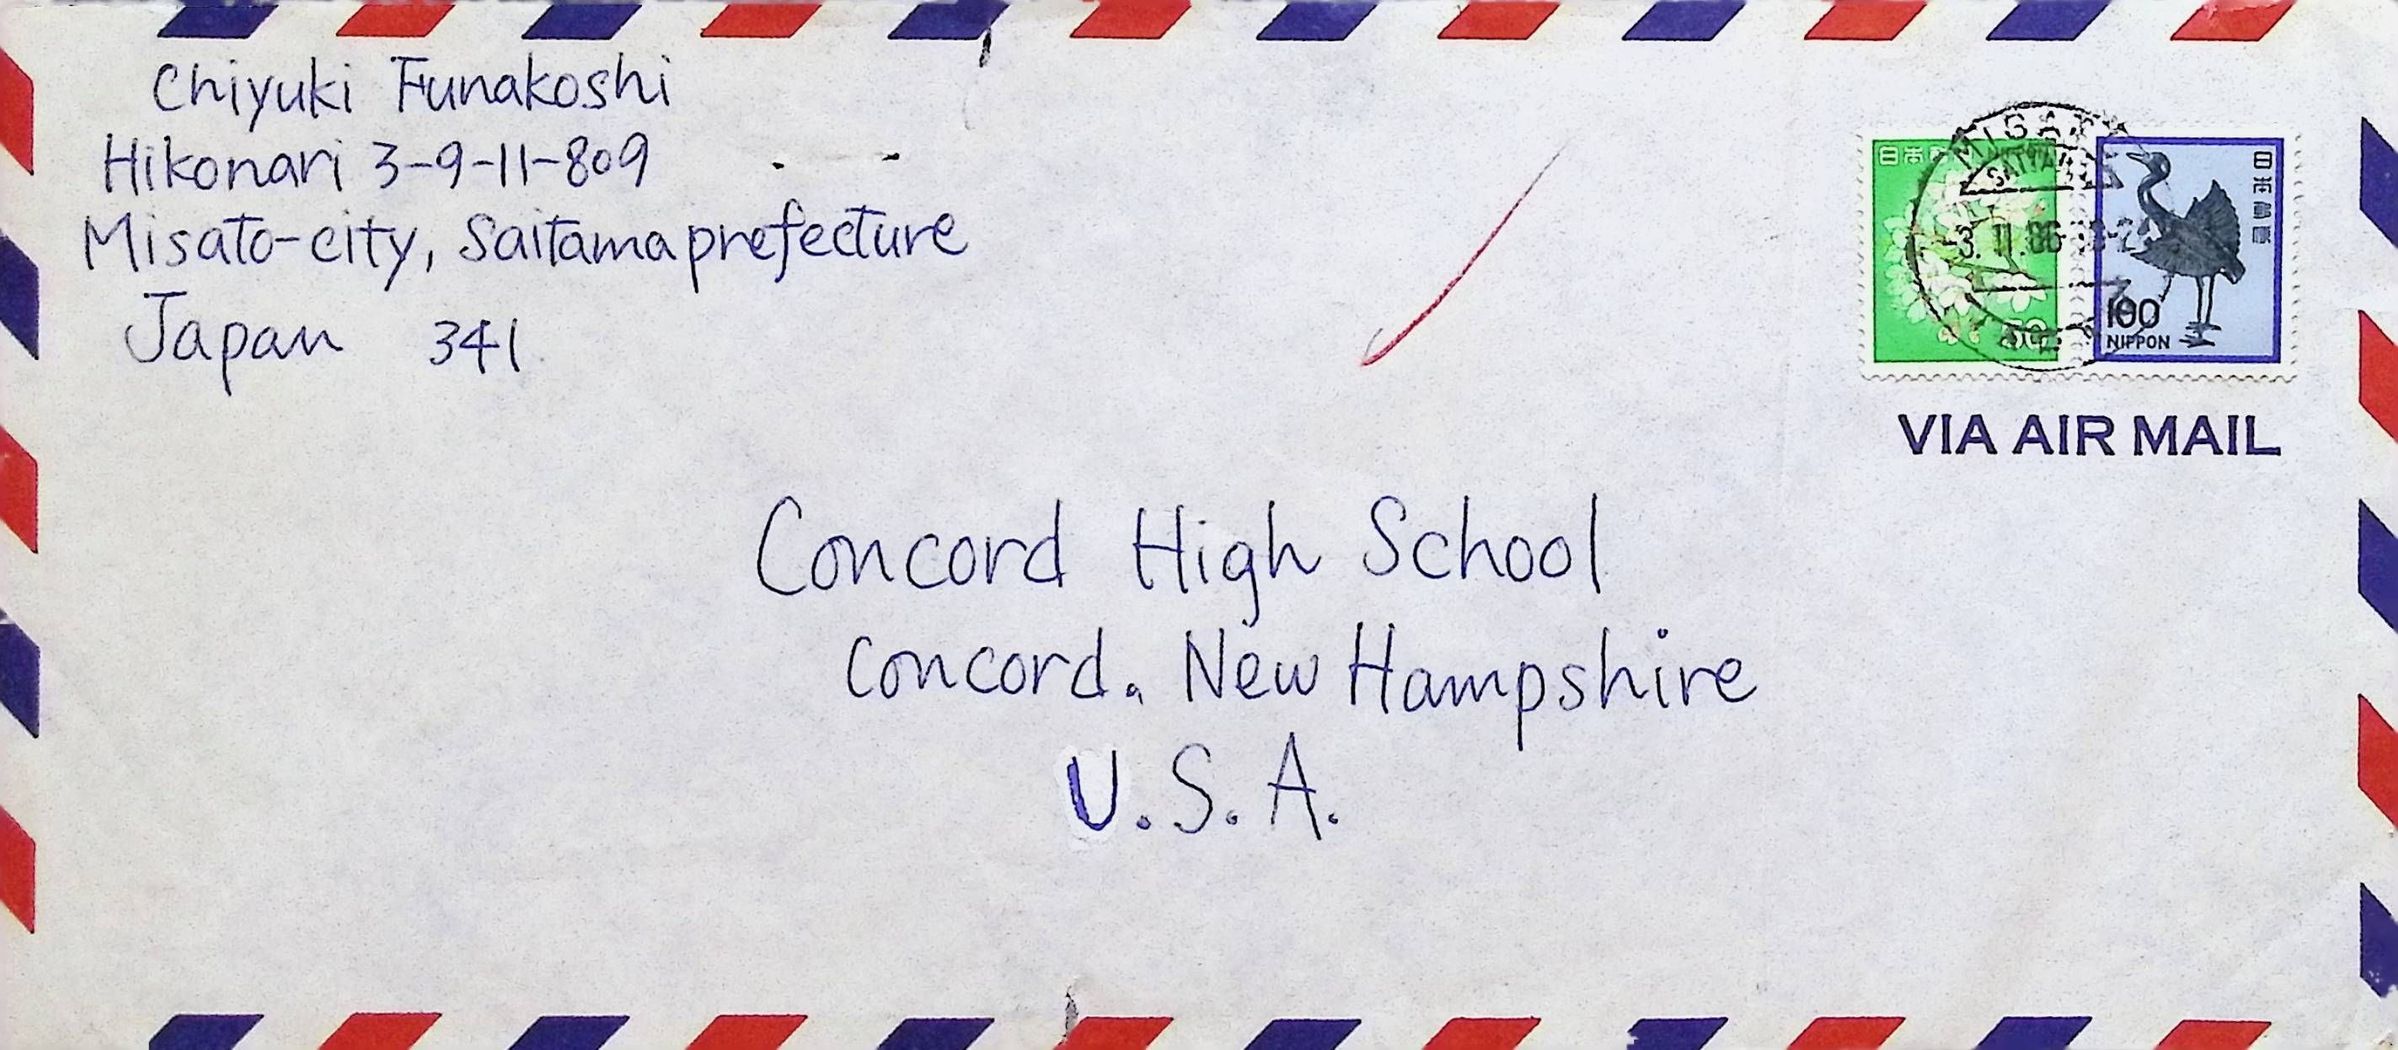 Chiyuki Funakoshi
Hikonari 3-9-11-809
Misato-city, Saitama prefecture
Japan 341
日本郵便
50
日本郵便
100
NIPPON
MISATO
SAITAMA
3.11.86
VIA AIR MAIL
Concord High School
Concord. New Hampshire
U.S.A.